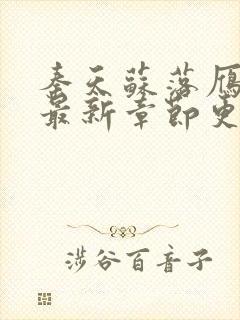 秦天蘇落雁
最新章節更
涉谷百音子